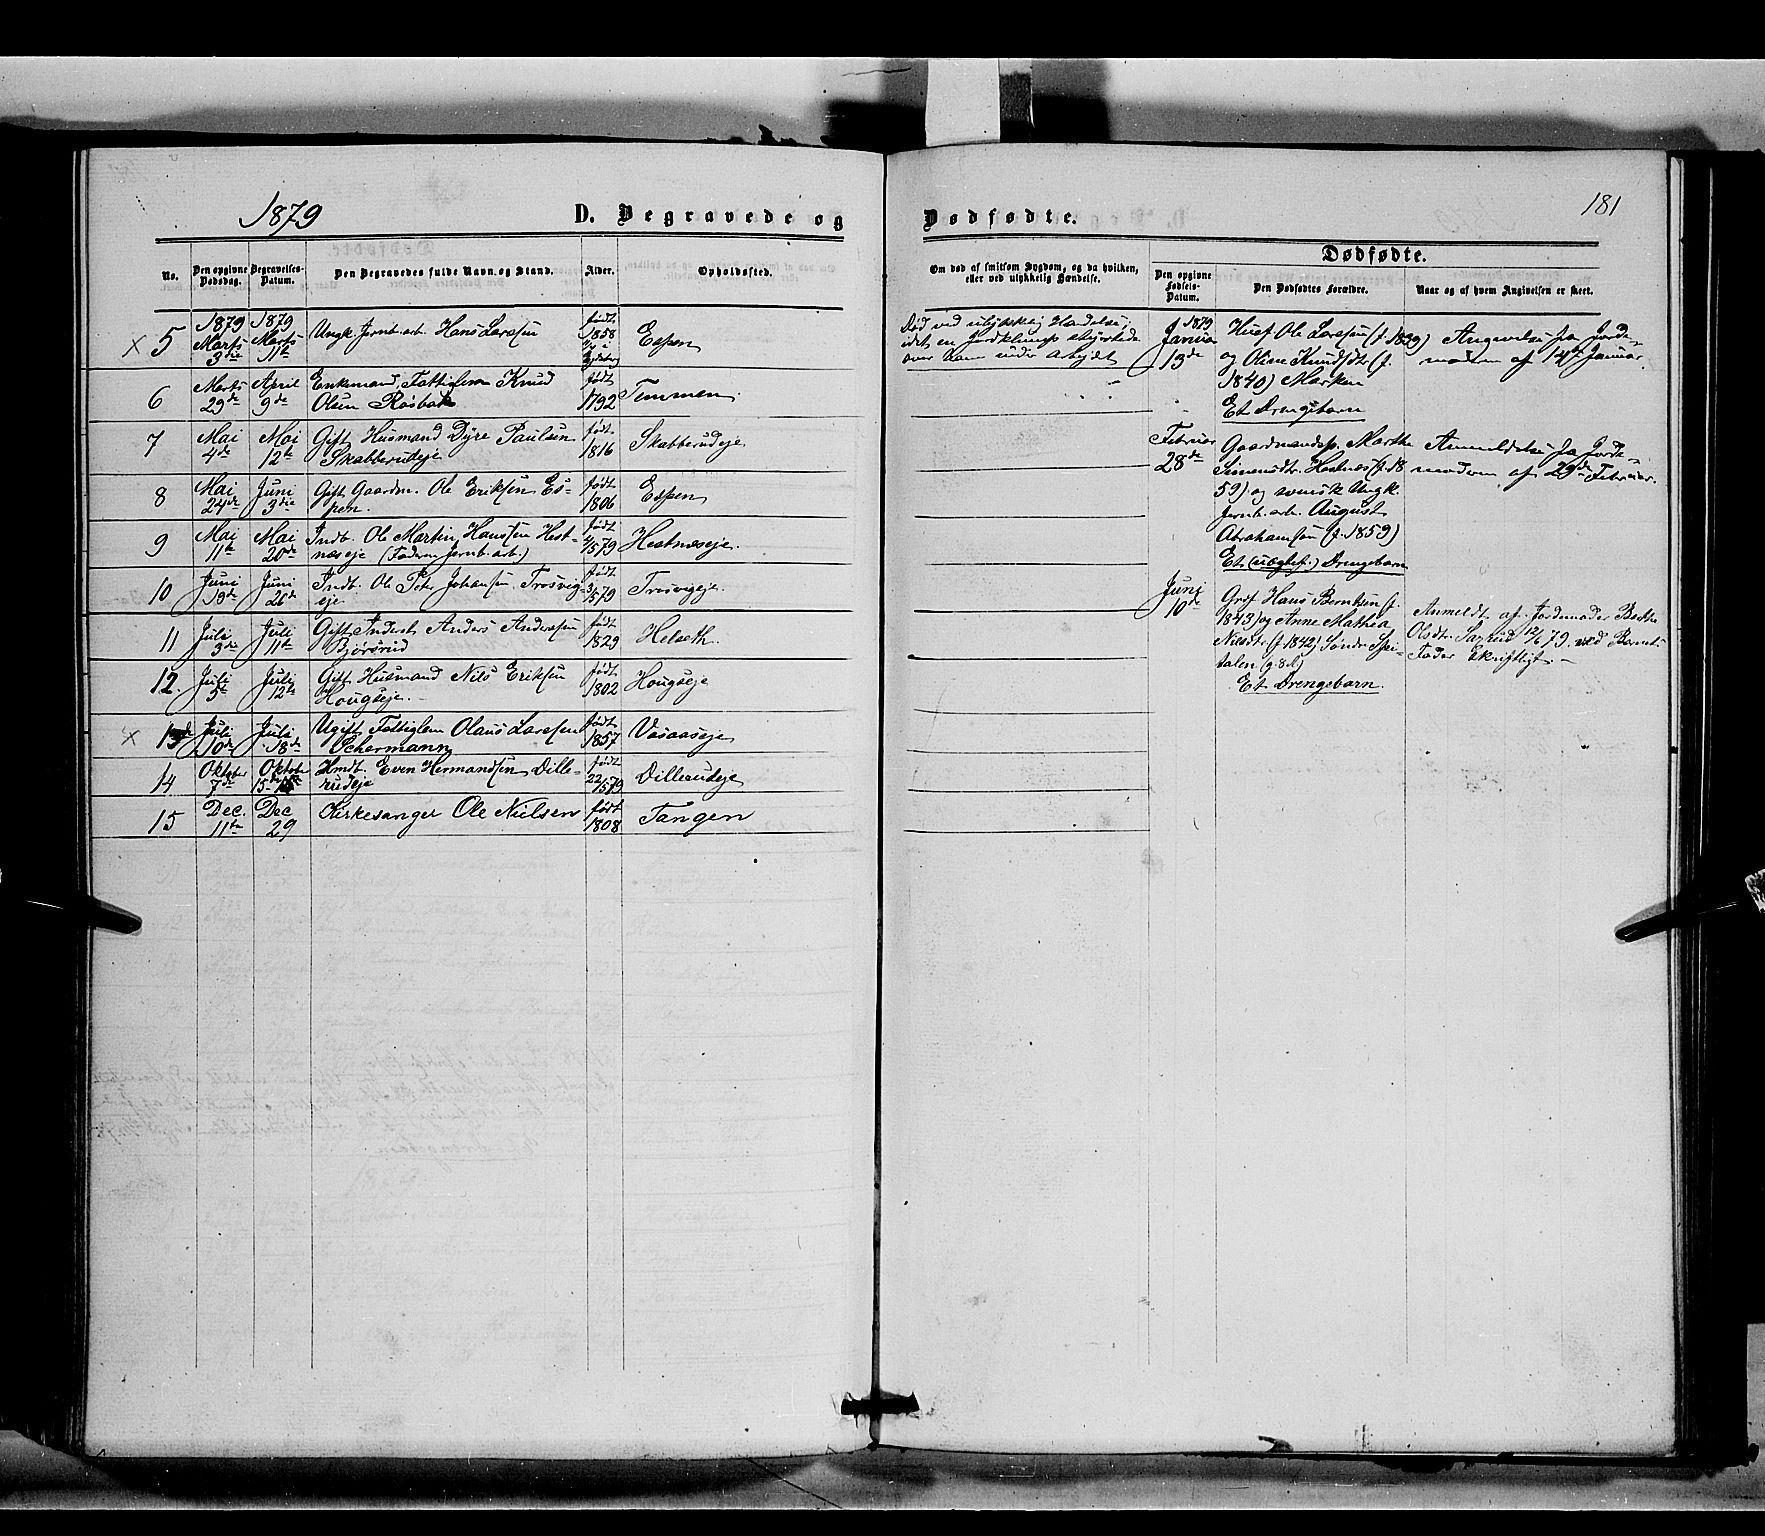 1879 D. Begravede og
No. Den opgivne Dødsdag. Begravelses-Datum. Den Begravedes fulde Navn og Stand. Alder. Opholdssted.
x 5 1879 Marts 3die 1879 Marts 11te Ungk. Jernb.arb. Hans Larsen født 1858 Espen
6 Marts 29de April 9de Enkemand, Fattiglem Knud
Olsen Røsbak født 1792 Temmen
7 Mai 4de Mai 12te Gift Husmand Dyre Paulsen
Skabberudeje født 1816 Skabberudeje
8 Mai 24de Juni 3die Gift Gaardm. Ole Eriksen Es-
pen. født 1806 Espen
9 Mai 11te Mai 20de Indb. Ole Martin Hansen Hest-
næseje (Faderen Jernb.arb.) født 4/5 79 Hestnæseje.
10 Juni 19de Juni 26de Indb. Ole Peter Johansen Trosvig-
eje. født 3/5 79 Trosvigeje.
11 Juli 3de Juli 11te Gift Inderst Anders Andersen
Bjørsrud født 1829 Helseth.
12. Juli 5te Juli 12te Gift Husmand Nils Eriksen
Hougseje. født 1802 Hougseje
x 13 Juli 10de Juli 18de Ugift Fattiglem Olaus Larsen
Schermann født 1857 Vasaaseje
14 Oktober 7de Oktober 15de Hmdb. Even Hermandsen Dille-
rudeje født 22/5 79 Dillerudeje
15 Dec. 11te Dec 29 Kirkesanger Ole Nielsen født 1808 Tangen
Dødfødte. 181
Om død af smitsom Sygdom, og da hvilken, eller ved ulykkelig Hændelse.
Dødfødte.
Den opgivne Fødsels-Datum. Den Dødfødtes Forældre. Naar og af hvem Angivelsen er skeet.
Død ved ulykkelig Hændelse,
idet en Jordklump styrtede
over ham under arbejdet
1879 Januar 13de
Husf. Ole Larsen (f. 1839)
og Oline Knudsdtr (f.
1840) Marken
Et Drengebarn
Angivelse fra Jorde-
moderen af 14de Januar.
Februar 28de
Gaardmandsp. Marthe
Simensdtr. Hestnæs (f. 18
59) og svensk Ungk.
Jernb.arb. August
Abrahamsen (f. 1859)
Et (uægtef.) Drengebarn
Anmeldelse fra Jorde-
moderen af 29de Februar.
Juni 10de
Grdf. Hans Berntsen (f.
1843) og Anne Mathea
Nilsdtr (f 1842) Søndre Spi-
talen (g.8d)
Et Drengebarn.
Anmeldt af Jordemoder Berthe
Olsdt. Sagled 12/6 79. ved Barnets
Fader Skriftligt. –